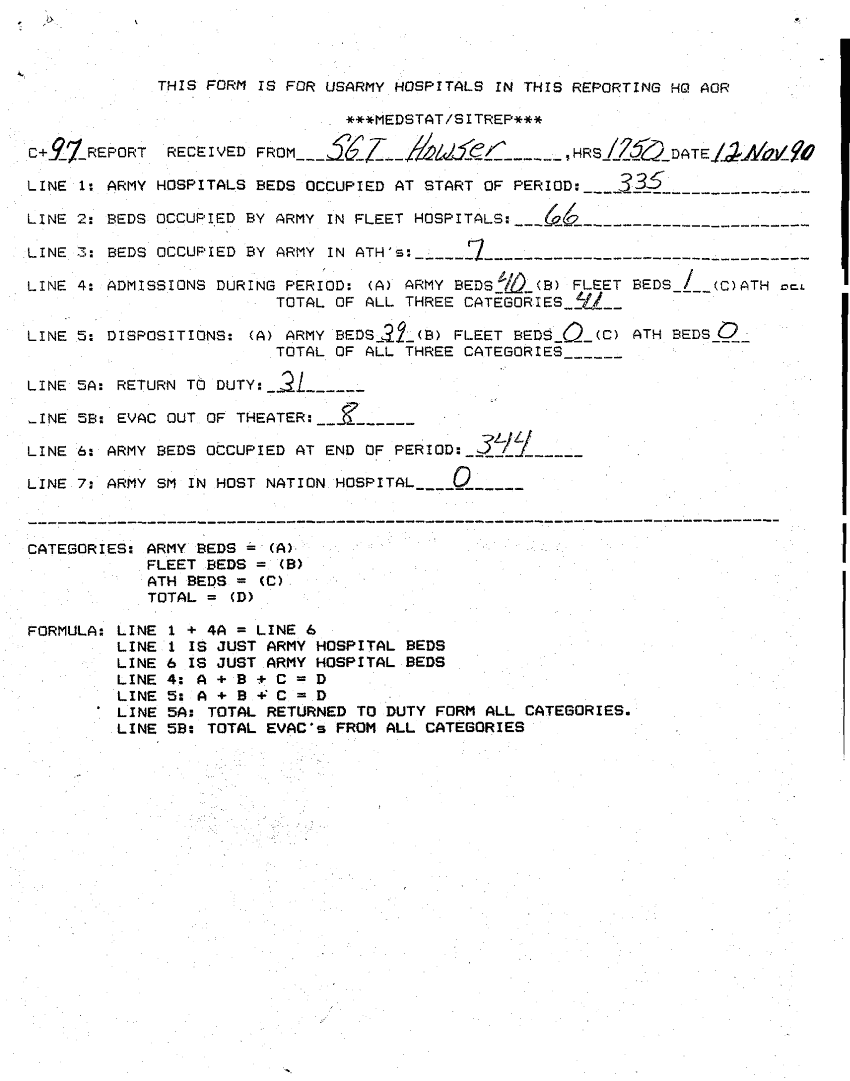 THIS FORM IS FOR USARMY HOSPITALS IN THIS REPORTING HQ AOR
***MEDSTAT/SITREP***
C+97_REPORT RECEIVED FROM___SGT__Howser______,HRS 1750 DATE 12 Nov 90
LINE 1: ARMY HOSPITALS BEDS OCCUPIED AT START OF PERIOD:___335______________
LINE 2: BEDS OCCUPIED BY ARMY IN FLEET HOSPITALS:___66______________________
LINE 3: BEDS OCCUPIED BY ARMY IN ATH's:_____7_______________________________
LINE 4: ADMISSIONS DURING PERIOD: (A) ARMY BEDS_40_(B) FLEET BEDS_1__(C)ATH
TOTAL OF ALL THREE CATEGORIES_41__
LINE 5: DISPOSITIONS: (A) ARMY BEDS_39_(B) FLEET BEDS_0_(C) ATH BEDS_0_
TOTAL OF ALL THREE CATEGORIES______
LINE 5A: RETURN TO DUTY:_31______
LINE 5B: EVAC OUT OF THEATER:__8______
LINE 6: ARMY BEDS OCCUPIED AT END OF PERIOD:_344_____
LINE 7: ARMY SM IN HOST NATION HOSPITAL____0_____
CATEGORIES: ARMY BEDS = (A)
FLEET BEDS = (B)
ATH BEDS = (C)
TOTAL = (D)
FORMULA: LINE 1 + 4A = LINE 6
LINE 1 IS JUST ARMY HOSPITAL BEDS
LINE 6 IS JUST ARMY HOSPITAL BEDS
LINE 4: A + B + C = D
LINE 5: A + B + C = D
LINE 5A: TOTAL RETURNED TO DUTY FORM ALL CATEGORIES.
LINE 5B: TOTAL EVAC's FROM ALL CATEGORIES